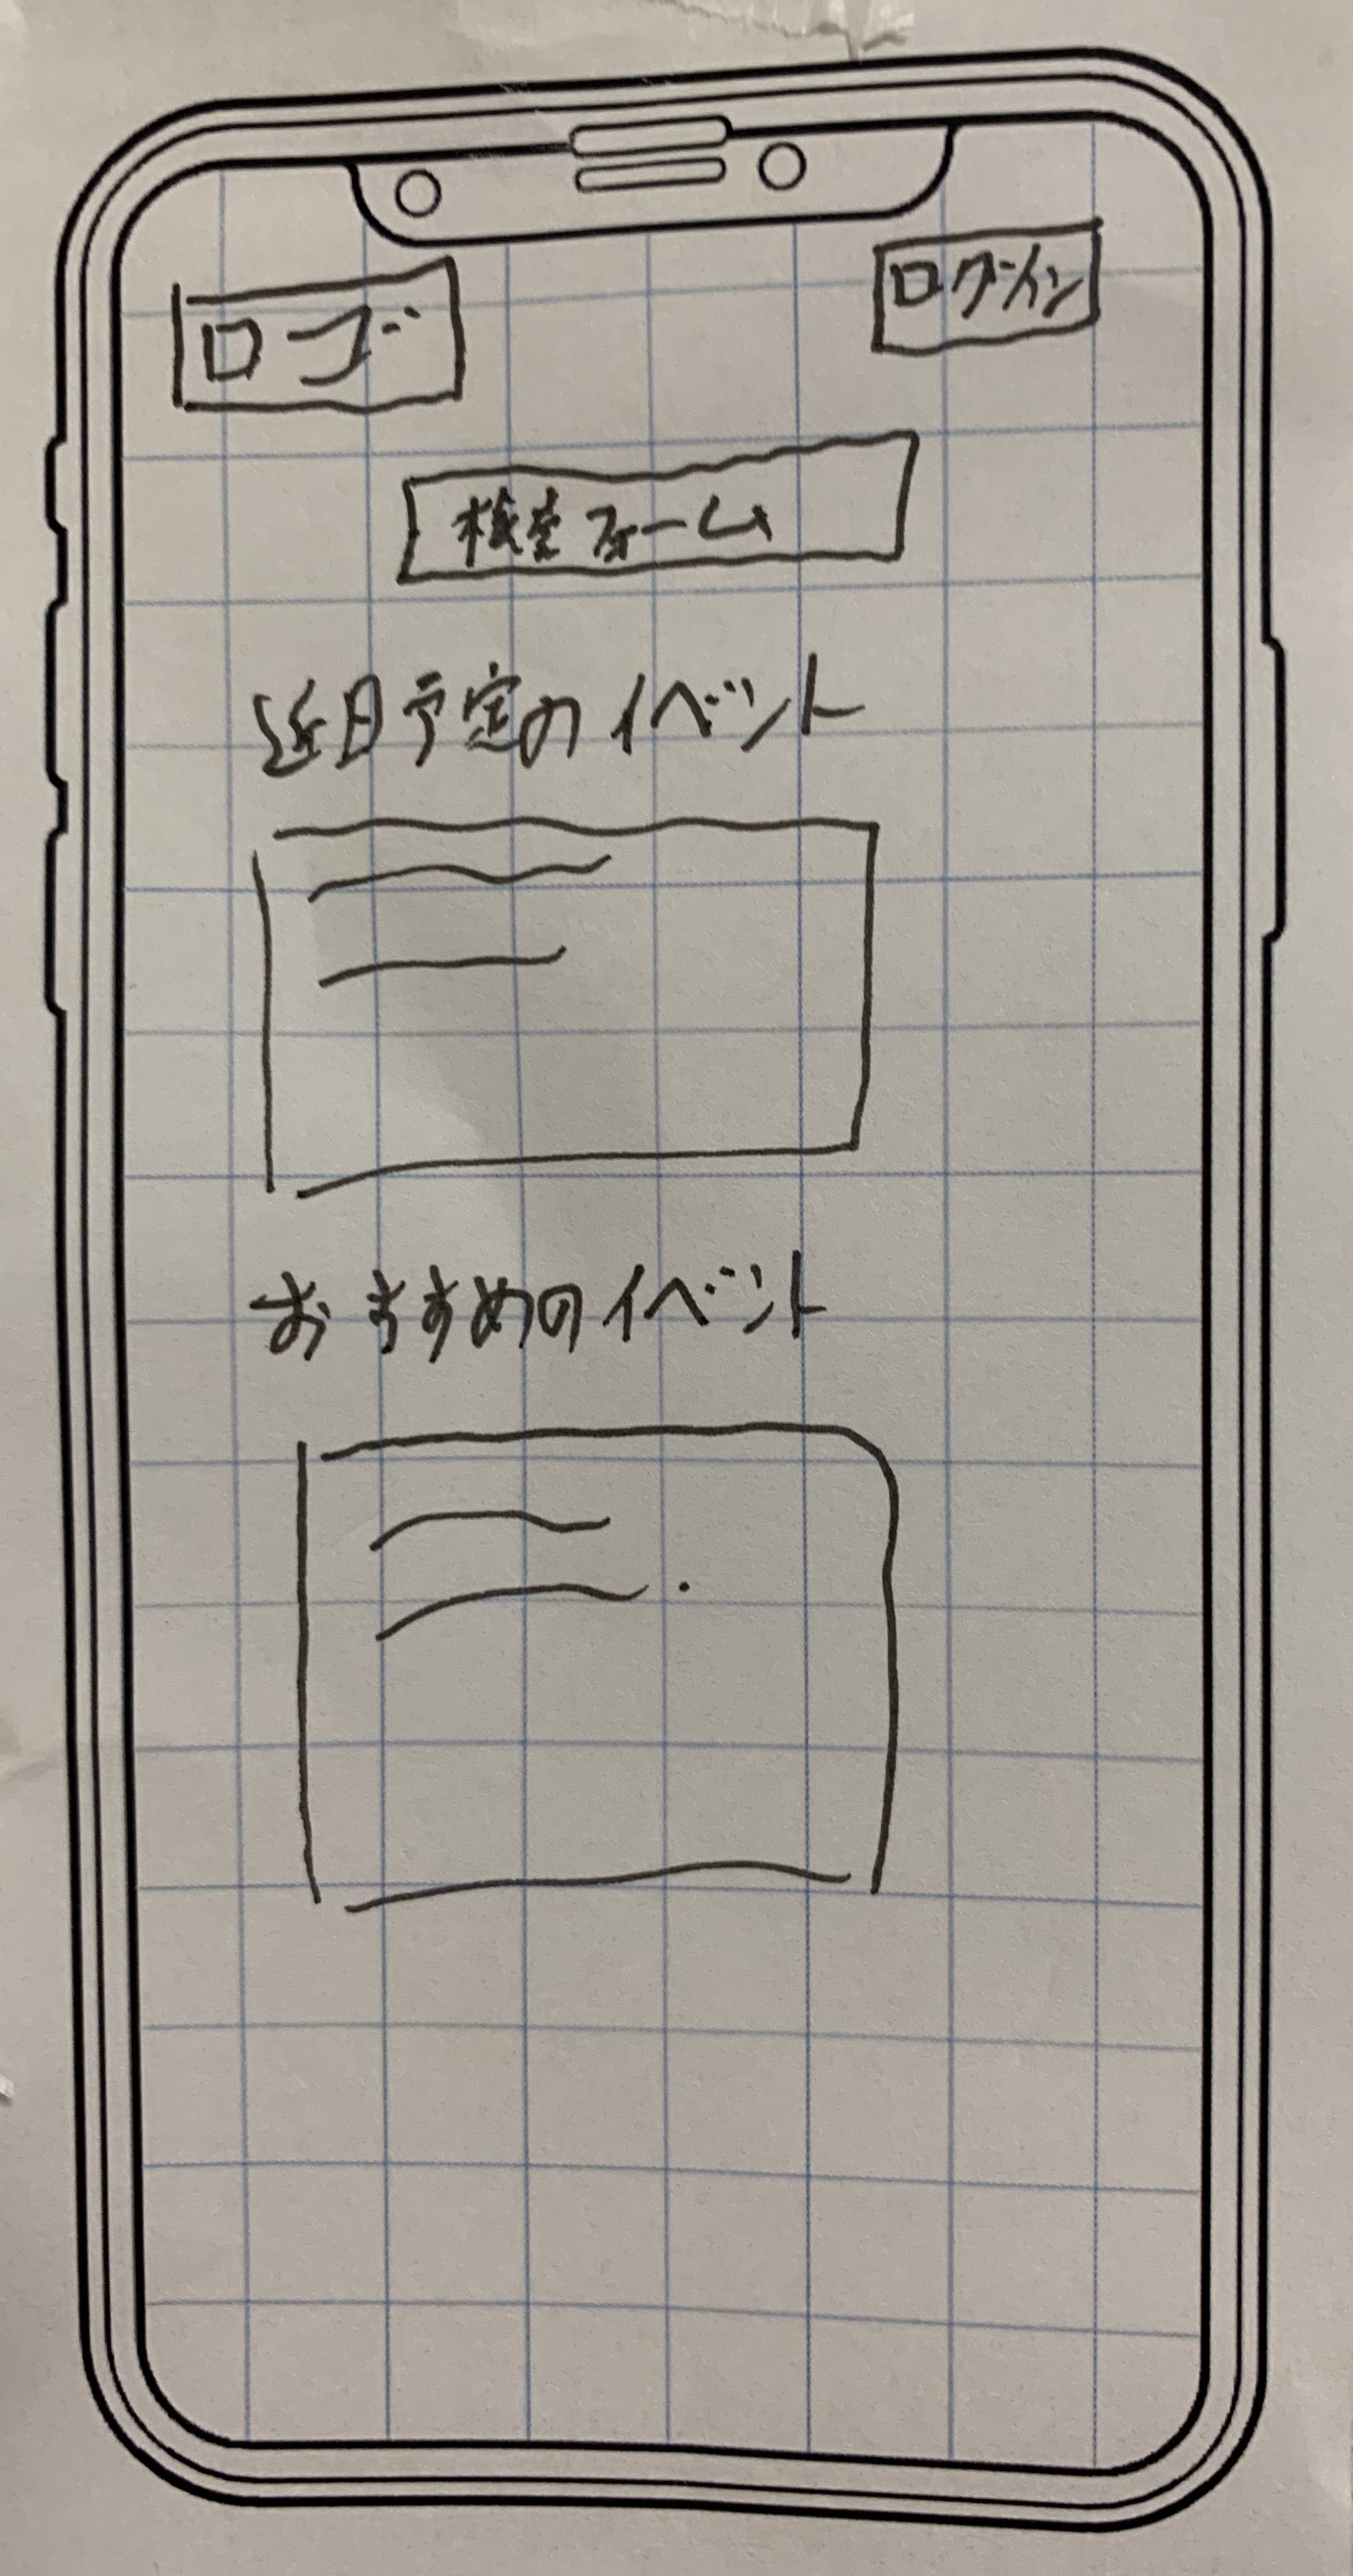 ロゴ
ログイン
検索フォーム
近日予定のイベント
おすすめのイベント